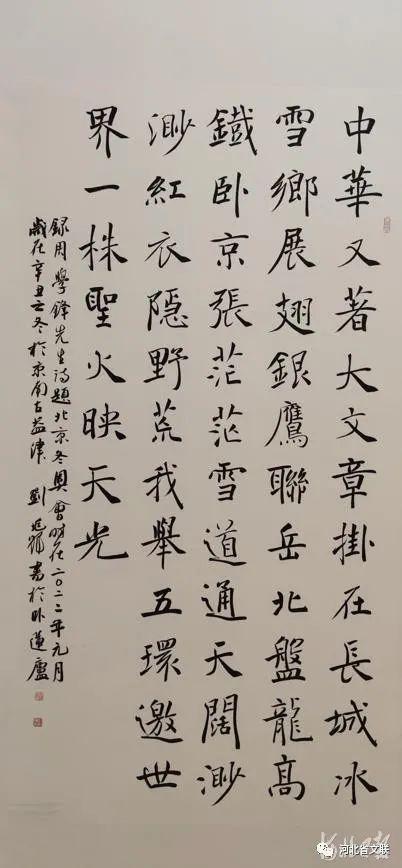 中華又著大文章掛在長城冰
雪鄉展翅銀鷹聯岳北盤龍高
鐵卧京張茫茫雪道通天闊渺
渺紅衣隱野荒我舉五環邀世
界一株聖火映天光
録周學鋒先生詩題北京冬奧會時在二〇二二年元月
歲在辛丑之冬於京南古益津劉書於卧蓮廬
河北省文联